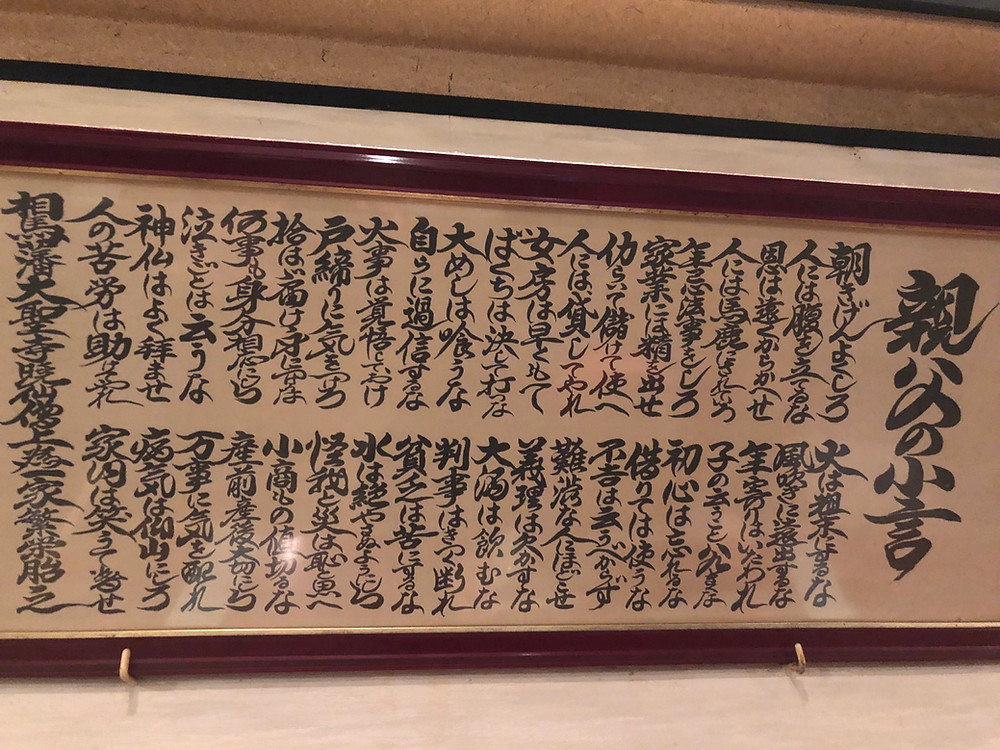 親父の小言
朝きげんよくしろ
人には腹を立てるな
恩は遠くからかへせ
人には馬鹿にされてろ
年忌法事をしろ
家業には精を出せ
仂らいて儲けて使へ
人には貸してやれ
女房は早くもて
ばくちは決して打な
大めしは喰うな
自らに過信するな
火事は覚悟しておけ
戸締りに気をつけろ
拾はば届け身につけるな
何事も身分相応にしろ
泣きごとは云うな
神仏はよく拝ませ
人の苦労は助けてやれ
火は粗末にするな
風吹きに遠出するな
年寄りはいたわれ
子の云うこと八九きくな
初心は忘れるな
借りては使うな
不吉は云うべからず
難渋な人にほどこせ
義理は欠かすな
大酒は飲むな
判事はきつく断れ
貧乏は苦にするな
水は絶やさぬようにしろ
怪我と災は恥と思へ
小商もの値切るな
産前産後大切にしろ
万事に気を配れ
病気は仰山にしろ
家内は笑うて暮せ
相馬藩大聖寺暁仙僧上 一家繁栄胎之